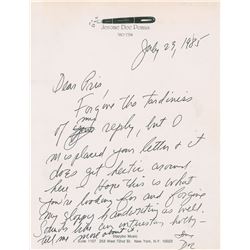 Jerome Doc Pomus
July 29, 1985
Dear Pris,
Forgive the tardiness
of my reply, but I
misplaced your letter & it
does get hectic around
here. I hope this is what
you're looking for and forgive
my sloppy handwriting as well.
Sounds like an interesting
tell me more about it.
Doc
Stardoc Music
Suite 1107 253 West 72nd St. New York, N.Y. 10023